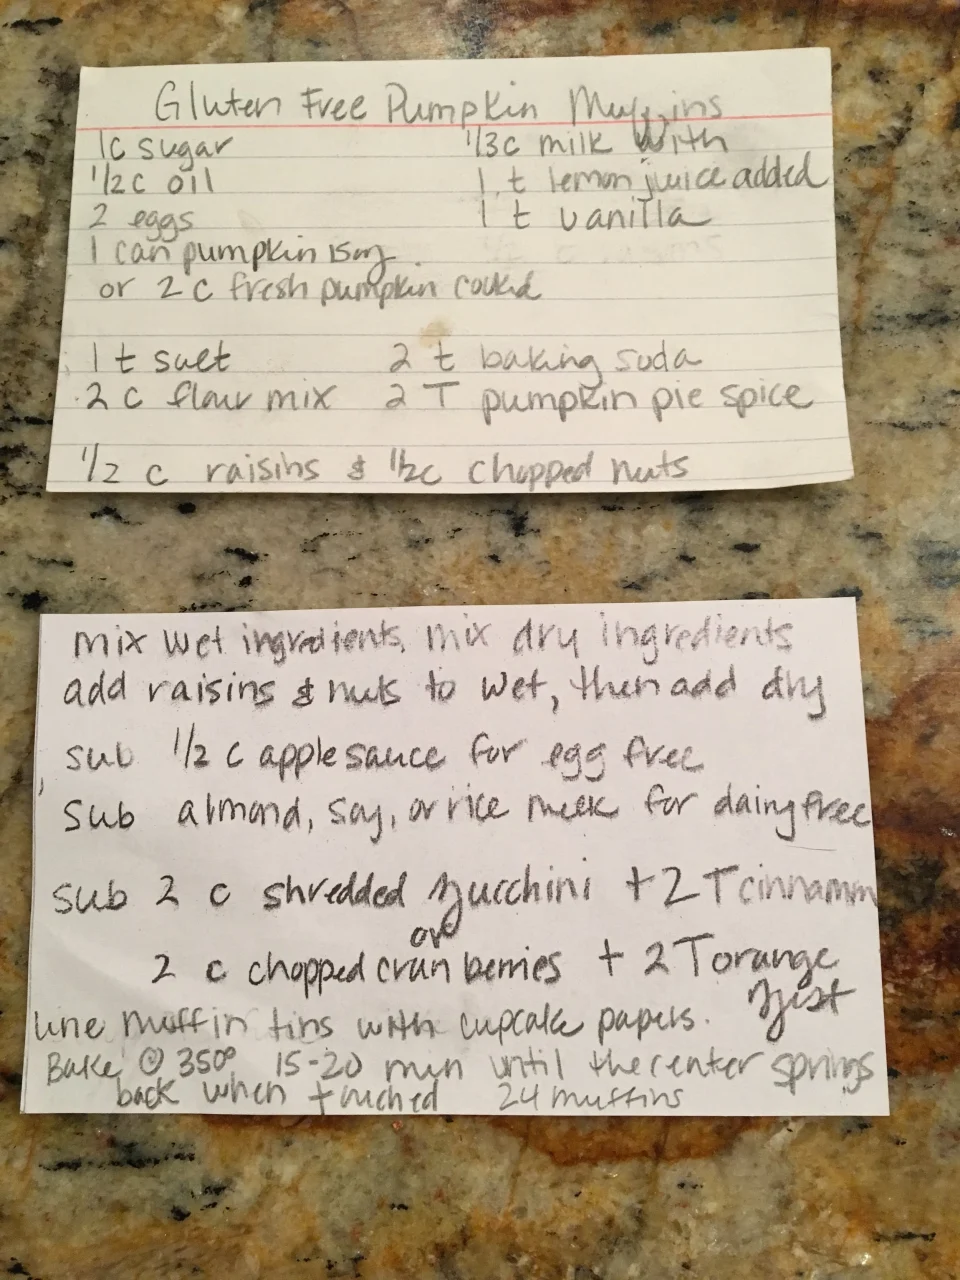 Gluten Free Pumpkin Muffins
1c sugar 1/3c milk with
1/2 c oil 1 t lemon juice added
2 eggs 1 t vanilla
1 can pumpkin 15oz.
or 2 c fresh pumpkin cooked
1 t salt 2 t baking soda
2 c flour mix 2 T pumpkin pie spice
1/2 c raisins & 1/2c chopped nuts
mix wet ingredients. mix dry ingredients
add raisins & nuts to wet, then add dry
sub 1/2 c applesauce for egg free
sub almond, soy, or rice milk for dairy free
sub 2 c shredded zucchini + 2 T cinnamon
or
2 c chopped cranberries + 2 T orange
zest
line muffin tins with cupcake papers.
Bake @ 350° 15-20 min until the center springs
back when touched 24 muffins